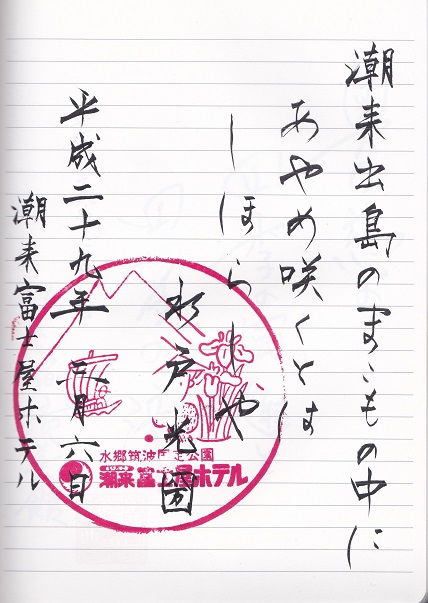 潮来出島のまこもの中に
あやめ咲くとは
しほらしや
水戸光圀
平成二十九年 三月六日
潮来富士屋ホテル
水郷筑波国定公園
潮来富士屋ホテル